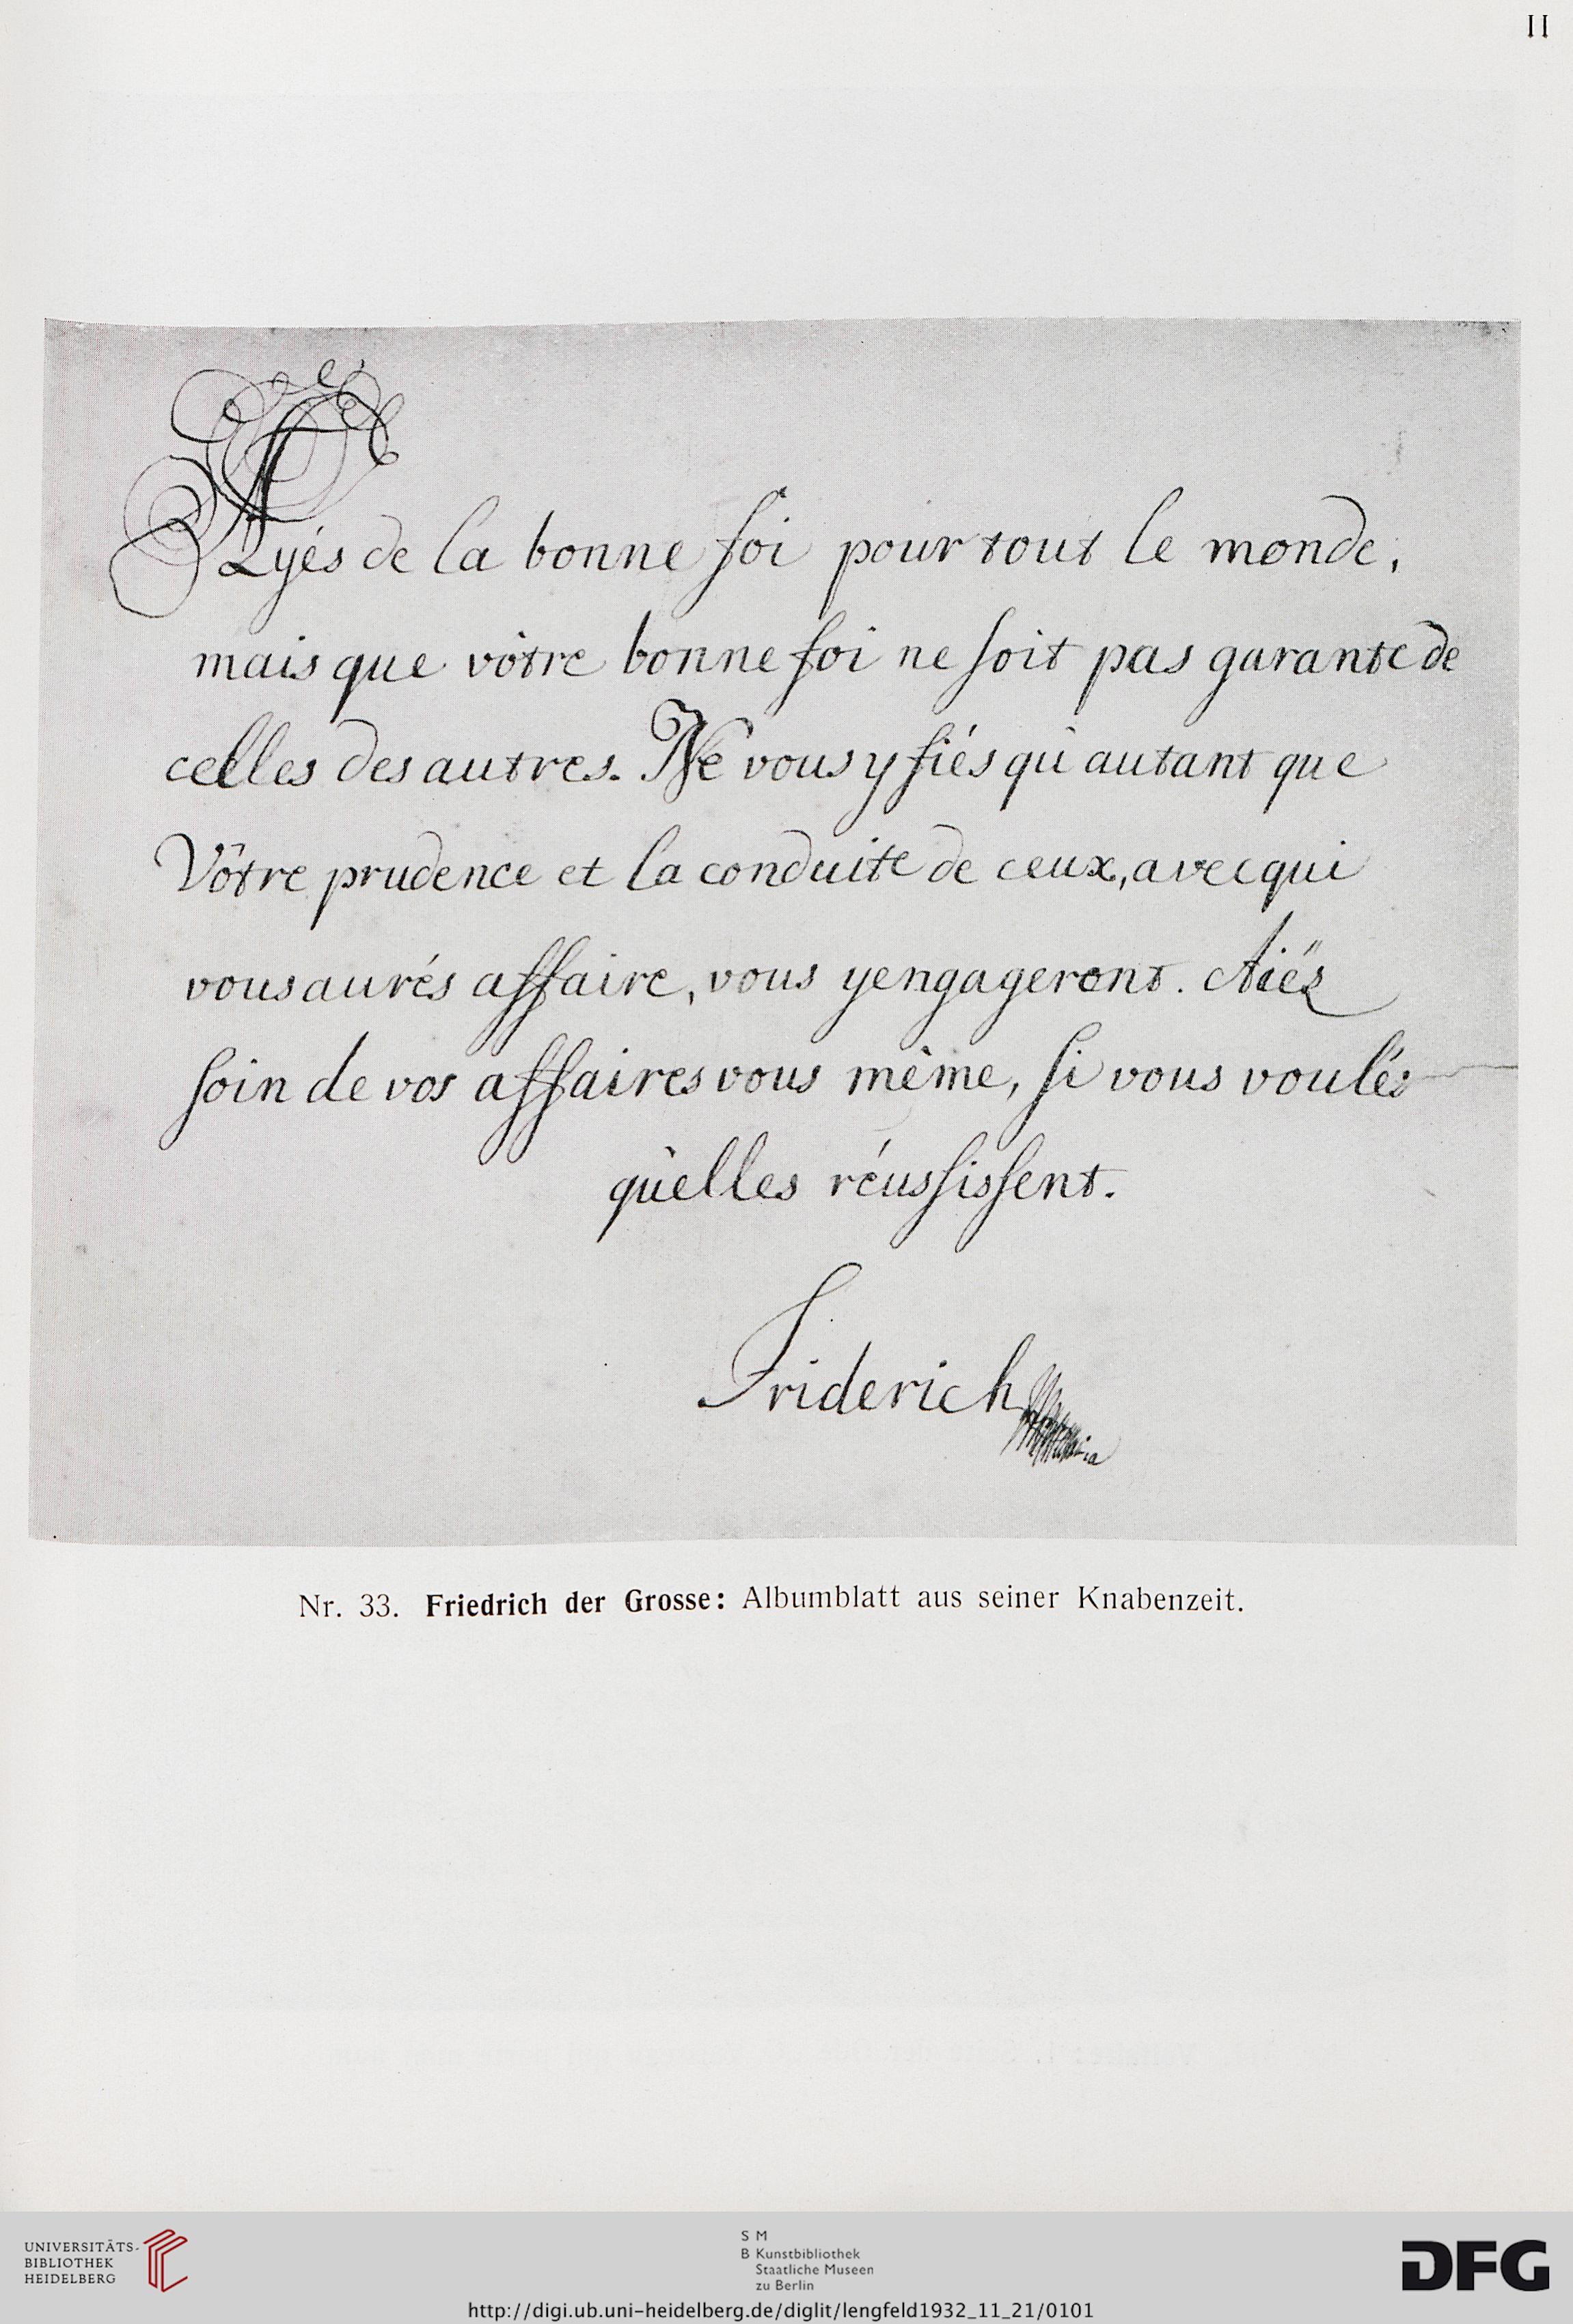 II
Ayés de la bonne foi pour tout le monde,
mais que vôtre bonne foi ne soit pas garante de
celles des autres. Ne vous y fiés qu'autant que
Vôtre prudence et la conduite de ceux, avec qui
vous aurés affaire, vous y engageront. Aiés
soin de vos affaires vous même, si vous voulés
qu'elles réussissent.
Friderich
Nr. 33. Friedrich der Grosse: Albumblatt aus seiner Knabenzeit.
UNIVERSITÄTS-
BIBLIOTHEK
HEIDELBERG
S M
B Kunstbibliothek
Staatliche Museen
zu Berlin
DFG
http://digi.ub.uni-heidelberg.de/diglit/lengfeld1932_11_21/0101